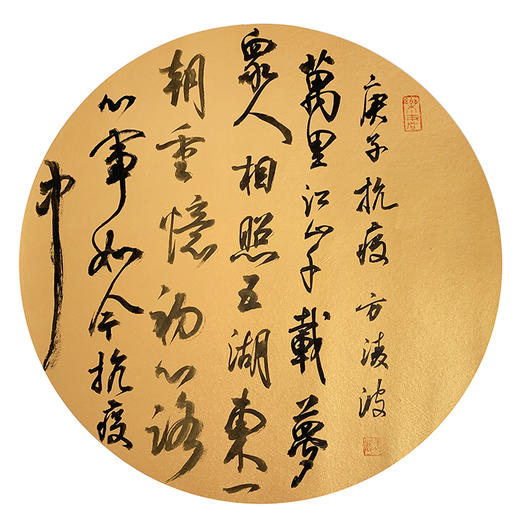 庚子抗疫 方凌波
萬里江山千載夢
眾人相照五湖東一
朝重憶初心路
心事如今抗疫
中